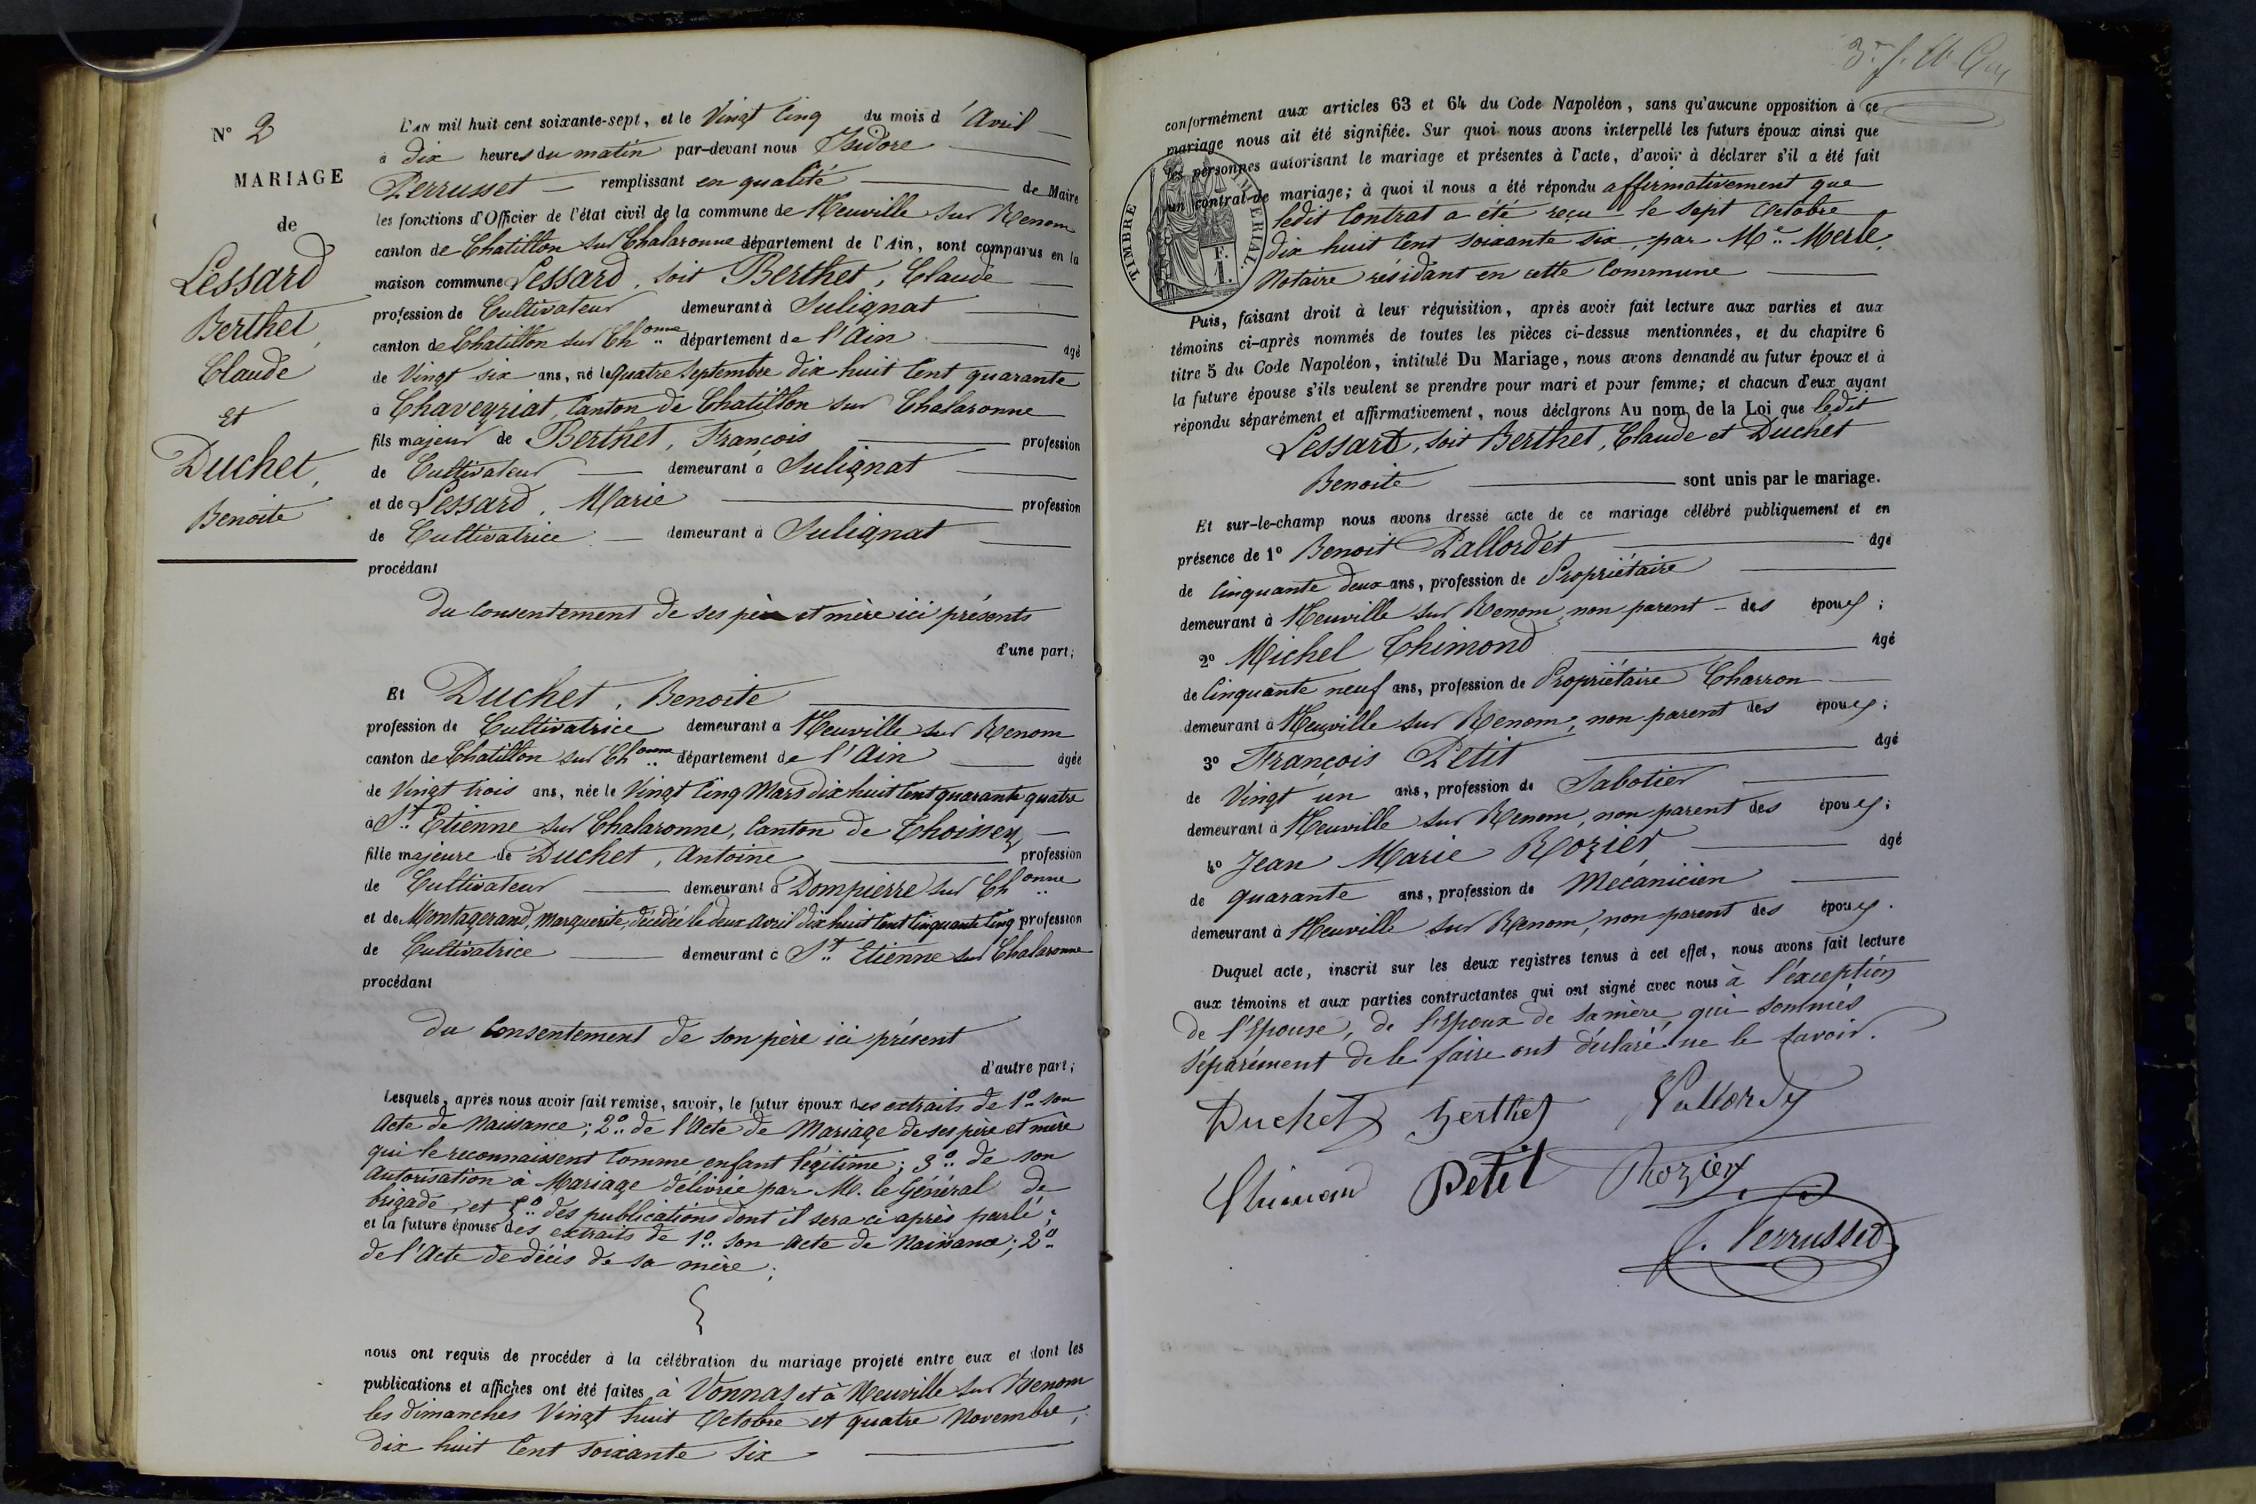 N° 2
MARIAGE
de
Lessard
Berthet,
Claude
et
Duchet,
Benoite
L'AN mil huit cent soixante-sept, et le Vingt Cinq du mois d'Avril
à dix heures du matin par-devant nous Isidore
Perrusset remplissant en qualité de Maire
les fonctions d'Officier de l'état civil de la commune de Neuville sur Renom
canton de Chatillon sur Chalaronne département de l'Ain, sont comparus en la
maison commune Lessard, soit Berthet, Claude
profession de Cultivateur demeurant à Sulignat
canton de Chatillon sur Ch.onne département de l'Ain âgé
de Vingt six ans, né le quatre Septembre dix huit Cent quarante
à Chaveyriat, Canton de Chatillon sur Chalaronne
fils majeur de Berthet, François profession
de Cultivateur demeurant à Sulignat
et de Lessard, Marie profession
de Cultivatrice demeurant à Sulignat
procédant
du Consentement de ses père et mère ici présents
d'une part;
Et Duchet, Benoite
profession de Cultivatrice demeurant à Neuville sur Renom
canton de Chatillon sur Ch.onne département de l'Ain âgée
de Vingt trois ans, née le Vingt Cinq Mars dix huit Cent quarante quatre
à St. Etienne sur Chalaronne, Canton de Thoissey
fille majeure de Duchet, Antoine profession
de Cultivateur demeurant à Dompierre sur Ch.onne
et de Montagerand, Marguerite, décédée le deux avril dix huit Cent Cinquante Cinq profession
de Cultivatrice demeurant à St. Etienne sur Chalaronne
procédant
du Consentement de son père ici présent
d'autre part;
Lesquels, après nous avoir fait remise, savoir, le futur époux des extraits de 1° son
Acte de Naissance; 2° de l'Acte de Mariage de ses père et mère
qui le reconnaissent Comme enfant légitime; 3° de son
autorisation à Mariage délivrée par M. le Général de
brigade, et des publications dont il sera ci après parlé;
et la future épouse des extraits de 1° son Acte de Naissance; 2°
de l'Acte de décès de sa mère;
nous ont requis de procéder à la célébration du mariage projeté entre eux et dont les
publications et affiches ont été faites à Vonnas et à Neuville sur Renom
les dimanches Vingt huit Octobre et quatre Novembre,
dix huit Cent soixante six
conformément aux articles 63 et 64 du Code Napoléon, sans qu'aucune opposition à ce
mariage nous ait été signifiée. Sur quoi nous avons interpellé les futurs époux ainsi que
les personnes autorisant le mariage et présentes à l'acte, d'avoir à déclarer s'il a été fait
un contrat de mariage; à quoi il nous a été répondu affirmativement que
TIMBRE IMPÉRIAL.
F. 1.
ledit Contrat a été reçu le sept Octobre
dix huit Cent soixante six, par Me. Merle,
Notaire résidant en cette Commune
Puis, faisant droit à leur réquisition, après avoir fait lecture aux parties et aux
témoins ci-après nommés de toutes les pièces ci-dessus mentionnées, et du chapitre 6
titre 5 du Code Napoléon, intitulé Du Mariage, nous avons demandé au futur époux et à
la future épouse s'ils veulent se prendre pour mari et pour femme; et chacun d'eux ayant
répondu séparément et affirmativement, nous déclarons Au nom de la Loi que ledit
Lessard, soit Berthet, Claude et Duchet
Benoite sont unis par le mariage.
Et sur-le-champ nous avons dressé acte de ce mariage célébré publiquement et en
présence de 1° Benoit Pallordet âgé
de Cinquante deux ans, profession de Propriétaire
demeurant à Neuville sur Renom, non parent des époux;
2° Michel Thimond âgé
de Cinquante neuf ans, profession de Propriétaire Charron
demeurant à Neuville sur Renom, non parent des époux;
3° François Petit âgé
de Vingt un ans, profession de Sabotier
demeurant à Neuville sur Renom, non parent des époux;
4° Jean Marie Rozier âgé
de quarante ans, profession de Mécanicien
demeurant à Neuville sur Renom, non parent des époux.
Duquel acte, inscrit sur les deux registres tenus à cet effet, nous avons fait lecture
aux témoins et aux parties contractantes qui ont signé avec nous à l'éxception
de l'Epouse, de l'Epoux de sa mère, qui sommés
séparément de le faire ont déclaré ne le savoir.
Duchet Berthet Pallordet
Thimond Petit Rozier
J. Perrusset